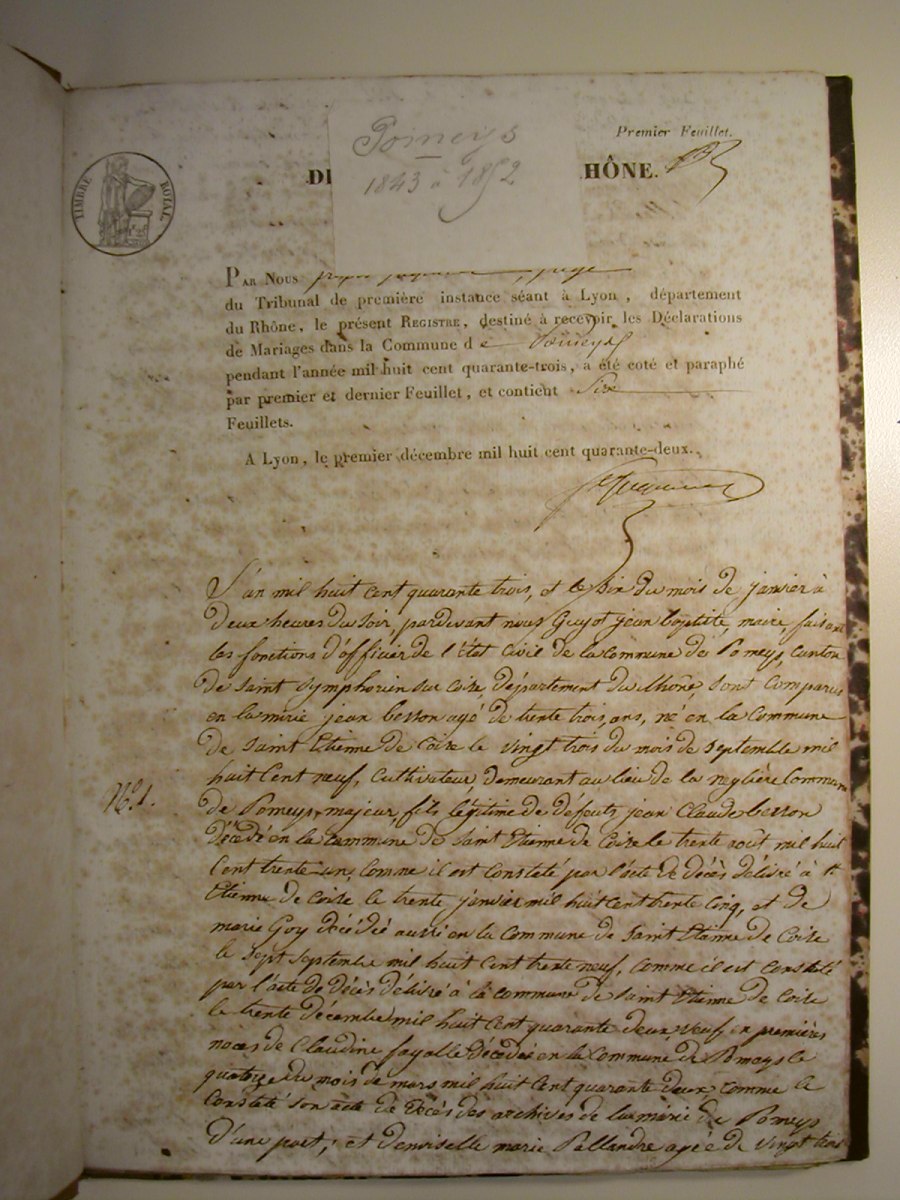 Premier Feuillet.
Pomeys
1843 à 1852
DE HÔNE.
TIMBRE ROYAL
PAR NOUS juge
du Tribunal de première instance séant à Lyon, département
du Rhône, le présent REGISTRE, destiné à recevoir les Déclarations
de Mariages dans la Commune de Pomeys
pendant l'année mil huit cent quarante-trois, a été coté et paraphé
par premier et dernier Feuillet, et contient Six
Feuillets.
A Lyon, le premier décembre mil huit cent quarante-deux.
L'an mil huit cent quarante trois, et le six du mois de janvier à
deux heures du soir pardevant nous Guyot jean baptiste, maire, faisant
les fonctions d'officier de l'état civil de la commune de Pomeys, canton
de saint symphorien sur coise, département du rhône, sont comparus
en la mirie jean besson agé de trente trois, ans, né en la commune
de saint Etienne de coise le vingt trois du mois de septembre mil
huit cent neuf, cultivateur, demeurant au lieu de la neylière commune
N.o 1.
de Pomeys, majeur, fils légitime de defeuts jean Claude besson
décédé en la commune de saint Etienne de coise le trente août mil huit
cent trente un, comme il est constaté par l'acte de décès délivré à st
Etienne de coise le trente janvier mil huit cent trente cinq, et de
marie Goy décédé aussi en la commune de saint Etienne de coise
le sept septembre mil huit cent trente neuf, comme il est constaté
par l'acte de décès délivré à la commune de saint Etienne de coise
le trente décembre mil huit cent quarante deux, veuf en premières
noces de Claudine fayolle décédée en la commune de Pomeys le
quatorze du mois de mars mil huit cent quarante deux comme le
constaté son acte de décès des archives de la mirie de Pomeys
d'une part; et demoiselle marie Pallandre agée de vingt